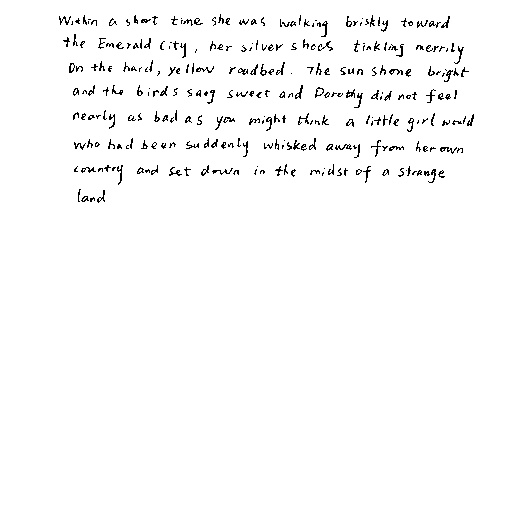 Within a short time she was walking briskly toward
the Emerald City, her silver shoes tinkling merrily
on the hard, yellow roadbed. The sun shone bright
and the birds sang sweet and Dorothy did not feel
nearly as bad as you might think a little girl would
who had been suddenly whisked away from her own
country and set down in the midst of a strange
land